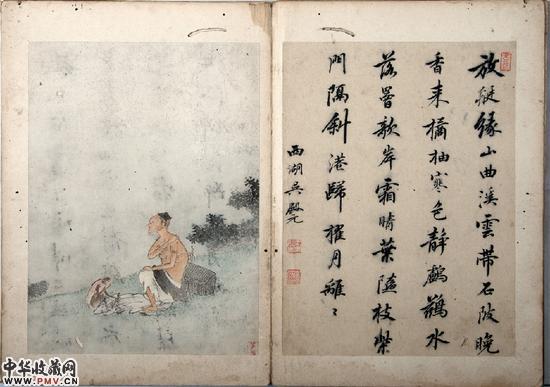 放艇緣山曲溪雲帶石陂晚
香来橘柚寒色靜鸕鶿水
落罾欹岸霜晴葉墮枝柴
門隔斜港歸櫂月離〻
西湖吳殿元
中华收藏网
WWW.PMV.CN